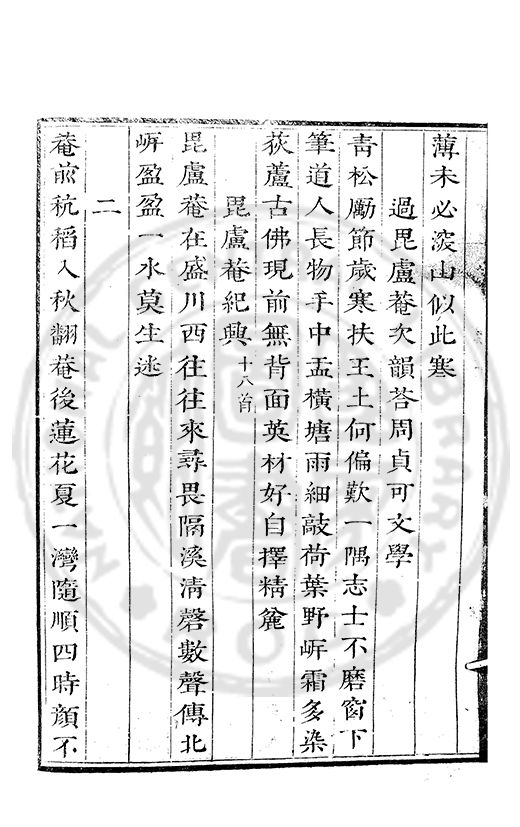 薄未必深山似此寒
過毘盧菴次韻荅周貞可文學
青松勵節歲寒扶王土何偏歎一隅志士不磨窗下
筆道人長物手中盂橫塘雨細敲荷葉野岍霜多染
荻蘆古佛現前無背面英材好自擇精麄
毘盧菴紀興十八首
毘盧菴在盛川西往往來尋畏隔溪清磬數聲傳北
岍盈盈一水莫生迷
二
菴前秔稻入秋翻菴後蓮花夏一灣隨順四時顏不